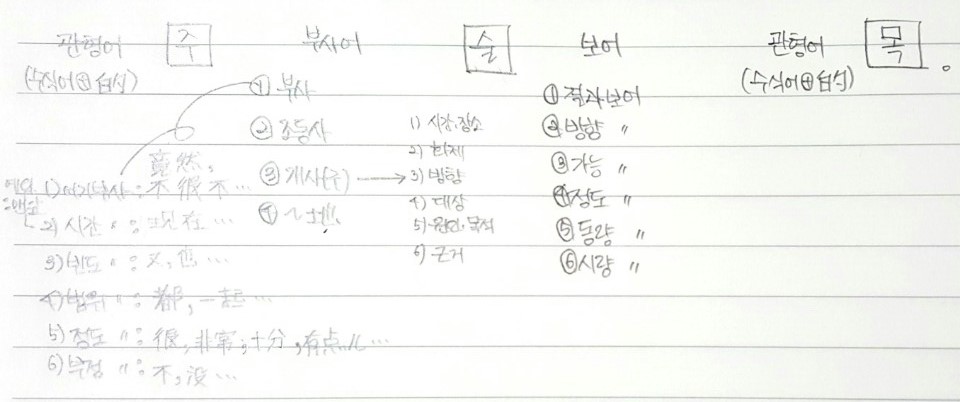 관형어 주 부사어 술 보어 관형어 목 。
(수식어⊕的식) (수식어⊕的식)
① 부사
② 조동사
③ 개사(구) →
④ ~地
1) 시간, 장소
2) 화제
3) 방향
4) 대상
5) 원인, 목적
6) 근거
① 결과보어
② 방향 〃
③ 가능 〃
④ 정도 〃
⑤ 동량 〃
⑥ 시량 〃
예외
竟然,
1) 어기부사 : 不很不…
2) 시간 〃 : 现在 …
3) 빈도 〃 : 又, 也 …
4) 범위 〃 : 都, 一起 …
5) 정도 〃 : 很, 非常, 十分, 有点儿 …
6) 부정 〃 : 不, 没 …